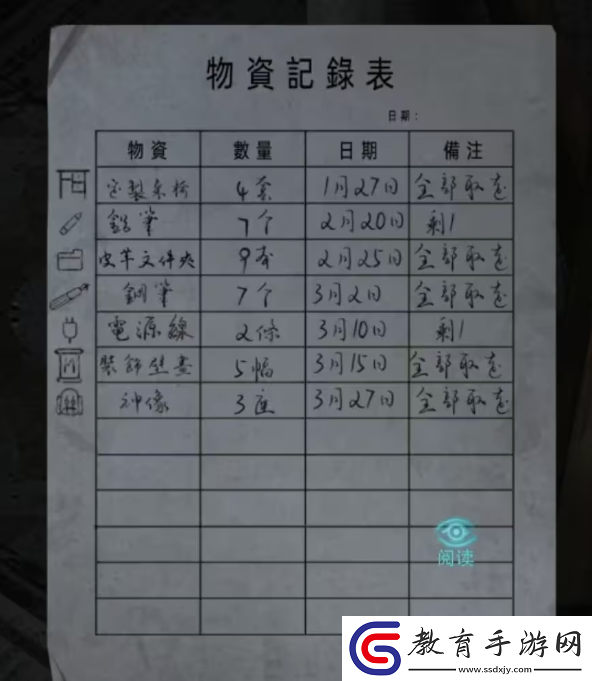 物資記錄表
日期：
物資 數量 日期 備注
定製桌椅 4套 1月27日 全部取走
鉛筆 7个 2月20日 剩1
皮革文件夾 9本 2月25日 全部取走
鋼筆 7个 3月2日 全部取走
電源線 2條 3月10日 剩1
裝飾壁畫 5幅 3月15日 全部取走
神像 3座 3月27日 全部取走
阅读
教育手游网
www.ssdxjy.com